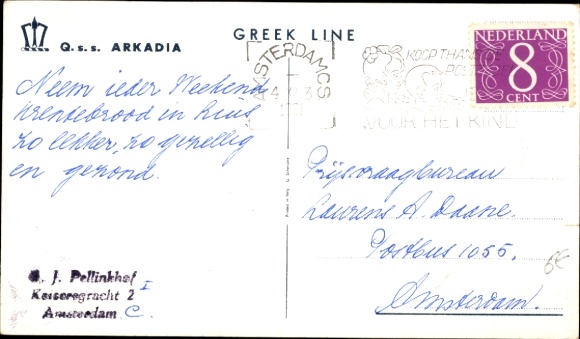 Q.s.s. ARKADIA
GREEK LINE
Neem ieder Weekend
krentebrood in huis
zo lekker, zo gezellig
en gezond.
J. Pellinkhof
Keizersgracht 2 I
Amsterdam C.
AMSTERDAM CS
KOOP THANS DE
VOOR HET KIND
NEDERLAND
8
CENT
Prijsvraagbureau
Laurens A. Daane.
Postbus 1055.
Amsterdam.
6€